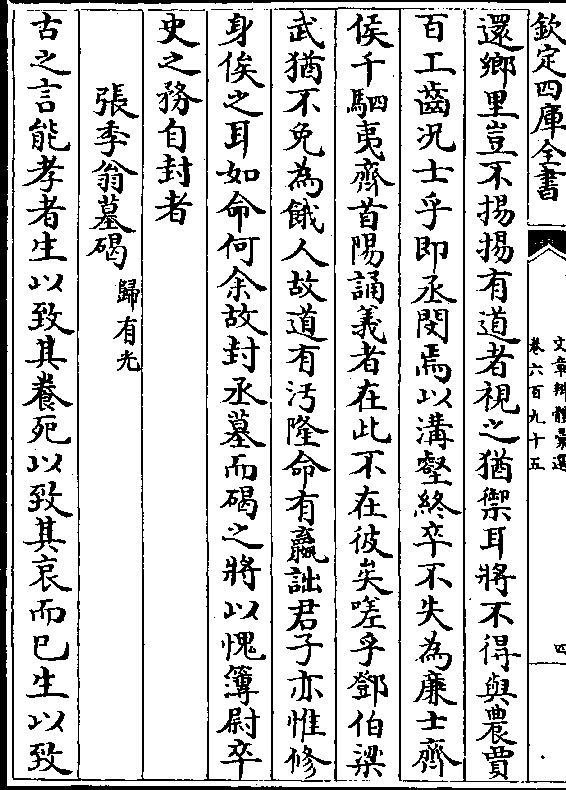 欽定四庫全書
文章辨體彙選
卷六百九十五
四
還鄉里豈不揚揚有道者視之猶禦耳將不得與農賈
百工齒況士乎即丞閔焉以溝壑終卒不失為廉士齊
侯千駟夷齊首陽誦義者在此不在彼矣嗟乎鄧伯梁
武猶不免為餓人故道有汚隆命有贏詘君子亦惟修
身俟之耳如命何余故封丞墓而碣之將以愧簿尉卒
史之務自封者
張季翁墓碣
歸有光
古之言能孝者生以致其養死以致其哀而已生以致